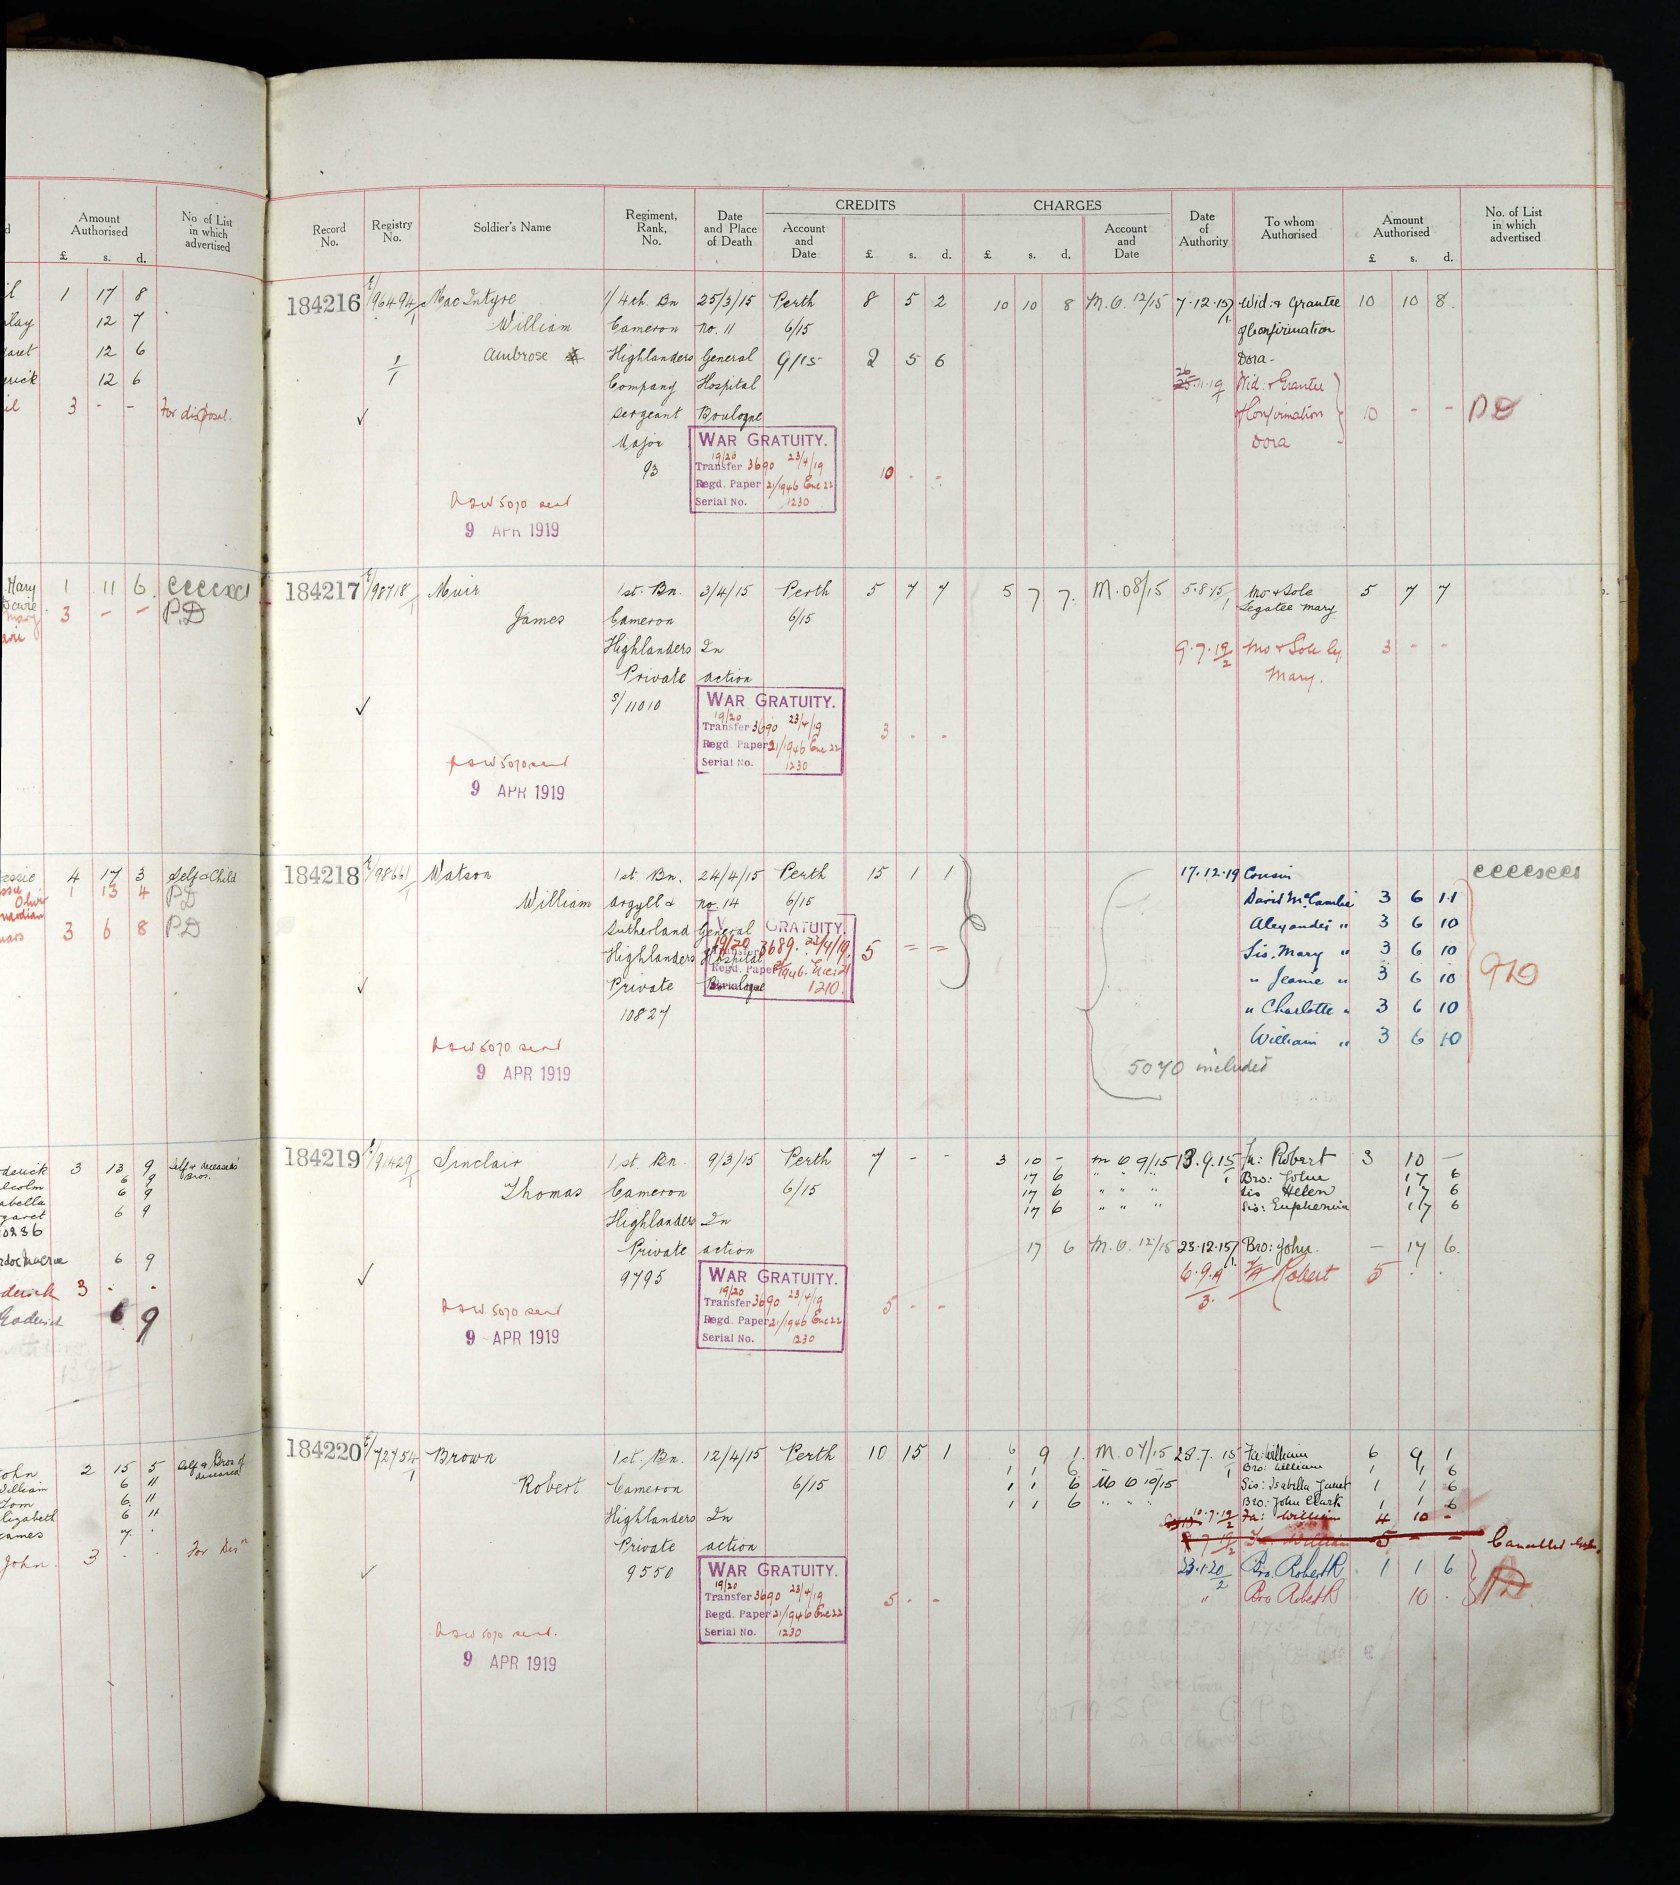 Amount
Authorised
£ s. d.
No of List
in which
advertised
1 17 8
12 7
12 6
12 6
3 - - For disposal.
Mary 1 11 6
3 - - P.D
4 17 3 Self & Child
1 13 4 PD
3 6 8 PD
3 13 9 Self & deceased's
Bros.
6 9
6 9
6 9
6 9
3 . .
6 9
John 2 15 5 Self & Bros of
deceased
William 6 11
Tom 6 11
Elizabeth 6 11
James 7 .
John. 3 . .
Record
No.
Registry
No.
Soldier's Name
Regiment,
Rank,
No.
Date
and Place
of Death
CREDITS
Account
and
Date
£ s. d.
CHARGES
£ s. d.
Account
and
Date
Date
of
Authority
To whom
Authorised
Amount
Authorised
£ s. d.
No. of List
in which
advertised
184216 E/96494/1 MacIntyre 1/4th. Bn 25/3/15 Perth 8 5 2 10 10 8 M.O. 12/15 7.12.15/1 Wid: & Grantee 10 10 8.
William Cameron No. 11 6/15 of Confirmation
Ambrose Highlanders General 9/15 2 5 6 Dora-
1/1 Company Hospital 26 25.11.19/1 Wid: & Grantee
Sergeant Boulogne of Confirmation 10 - -
Major Dora
93
WAR GRATUITY.
19/20
Transfer 3690 23/4/19
Regd. Paper 21/1946 Enc 22
Serial No. 1230
10 . -
5070 sent
9 APR 1919
184217 E/98718/1 Muir 1st. Bn. 3/4/15 Perth 5 7 7 5 7 7. M.O 8/15 5.8.15/1 Mo & Sole 5 7 7
Legatee Mary
James Cameron 6/15
Highlanders In 9.7.19/2 Mo & Sole Leg 3 - -
Private action Mary.
S/11010
WAR GRATUITY.
19/20
Transfer 3690 23/4/19
Regd. Paper 21/1946 Enc 22
Serial No. 1230
3 . -
5070 sent
9 APR 1919
184218 E/98661/1 Watson 1st. Bn. 24/4/15 Perth 15 1 1 17.12.19 Cousin
William Argyll & No. 14 6/15 David McCambie 3 6 11
Sutherland General Alexander " 3 6 10
Highlanders Hospital Sis. Mary " 3 6 10
Private Boulogne " Jeanie " 3 6 10
10827 " Charlotte " 3 6 10
William " 3 6 10
GRATUITY.
19/20 3689. 23/4/19.
Regd. Paper 21/1946. Enc: 21
1210.
5 = =
5070 included
5070 sent
9 APR 1919
184219 E/91429/1 Sinclair 1st. Bn. 9/3/15 Perth 7 - - 3 10 - M O 9/15 13.9.15/1 Fa: Robert 3 10 -
17 6 " " " Bro: John 17 6
Thomas Cameron 6/15 17 6 " " " Sis Helen 17 6
17 6 " " " Sis: Euphemia 17 6
Highlanders In
Private action 17 6 M.O. 12/15 23.12.15/1 Bro: John. - 17 6.
9795 6.9.19/3. Fa Robert 5 . .
WAR GRATUITY.
19/20
Transfer 3690 23/4/19
Regd. Paper 21/1946 Enc 22
Serial No. 1230
5 - -
5070 sent
9 APR 1919
184220 E/72754/1 Brown 1st. Bn. 12/4/15 Perth 10 15 1 6 9 1. M.O 7/15 28.7.15/1 Fa: William 6 9 1
1 1 6 Bro: William 1 1 6
Robert Cameron 6/15 1 1 6 M O 10/15 Sis: Isabella Janet 1 1 6
1 1 6 " " " Bro: John Clark 1 1 6
Highlanders In 10.7.19/2 Fa: William 4 10 -
Private action 19/2 Fa. William 5 - - Cancelled
9550 23.1.20/2 Bro. Robert R. 1 1 6
" Bro Robert R 10 .
WAR GRATUITY.
19/20
Transfer 3690 23/4/19
Regd. Paper 21/1946 Enc 22
Serial No. 1230
5 . -
5070 sent.
9 APR 1919